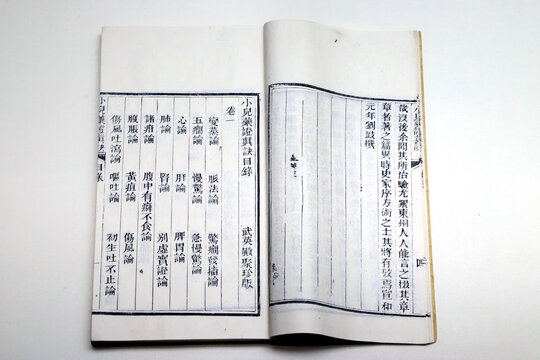 歲沒後余聞其所治驗尤眾東州人人能言之掇其章
章者著之篇異時史家序方術之士其將有攷焉宣和
元年劉跂撰
小兒藥證真訣目錄 武英殿聚珍版
卷一
變蒸論 脈法論 驚癇發搐論
五癇論 慢驚論 急慢驚論
心論 肝論 脾胃論
肺論 腎論 別虛實證論
諸疳論 腹中有癖不食論
腹脹論 黃疸論 傷風論
傷風吐瀉論 嘔吐論 初生吐不止論